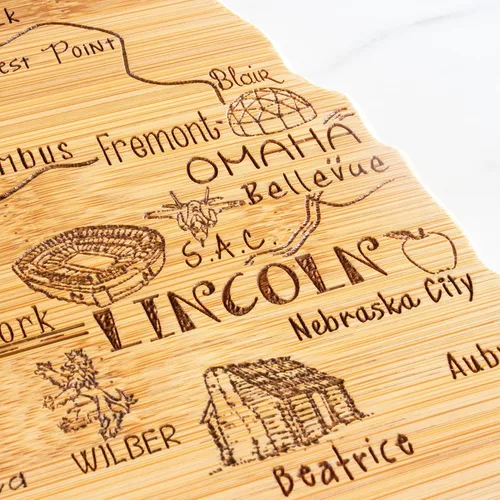 est Point
Blair
mbus
Fremont
OMAHA
Bellevue
S.A.C.
LINCOLN
Nebraska City
ork
Aub
WILBER
Beatrice